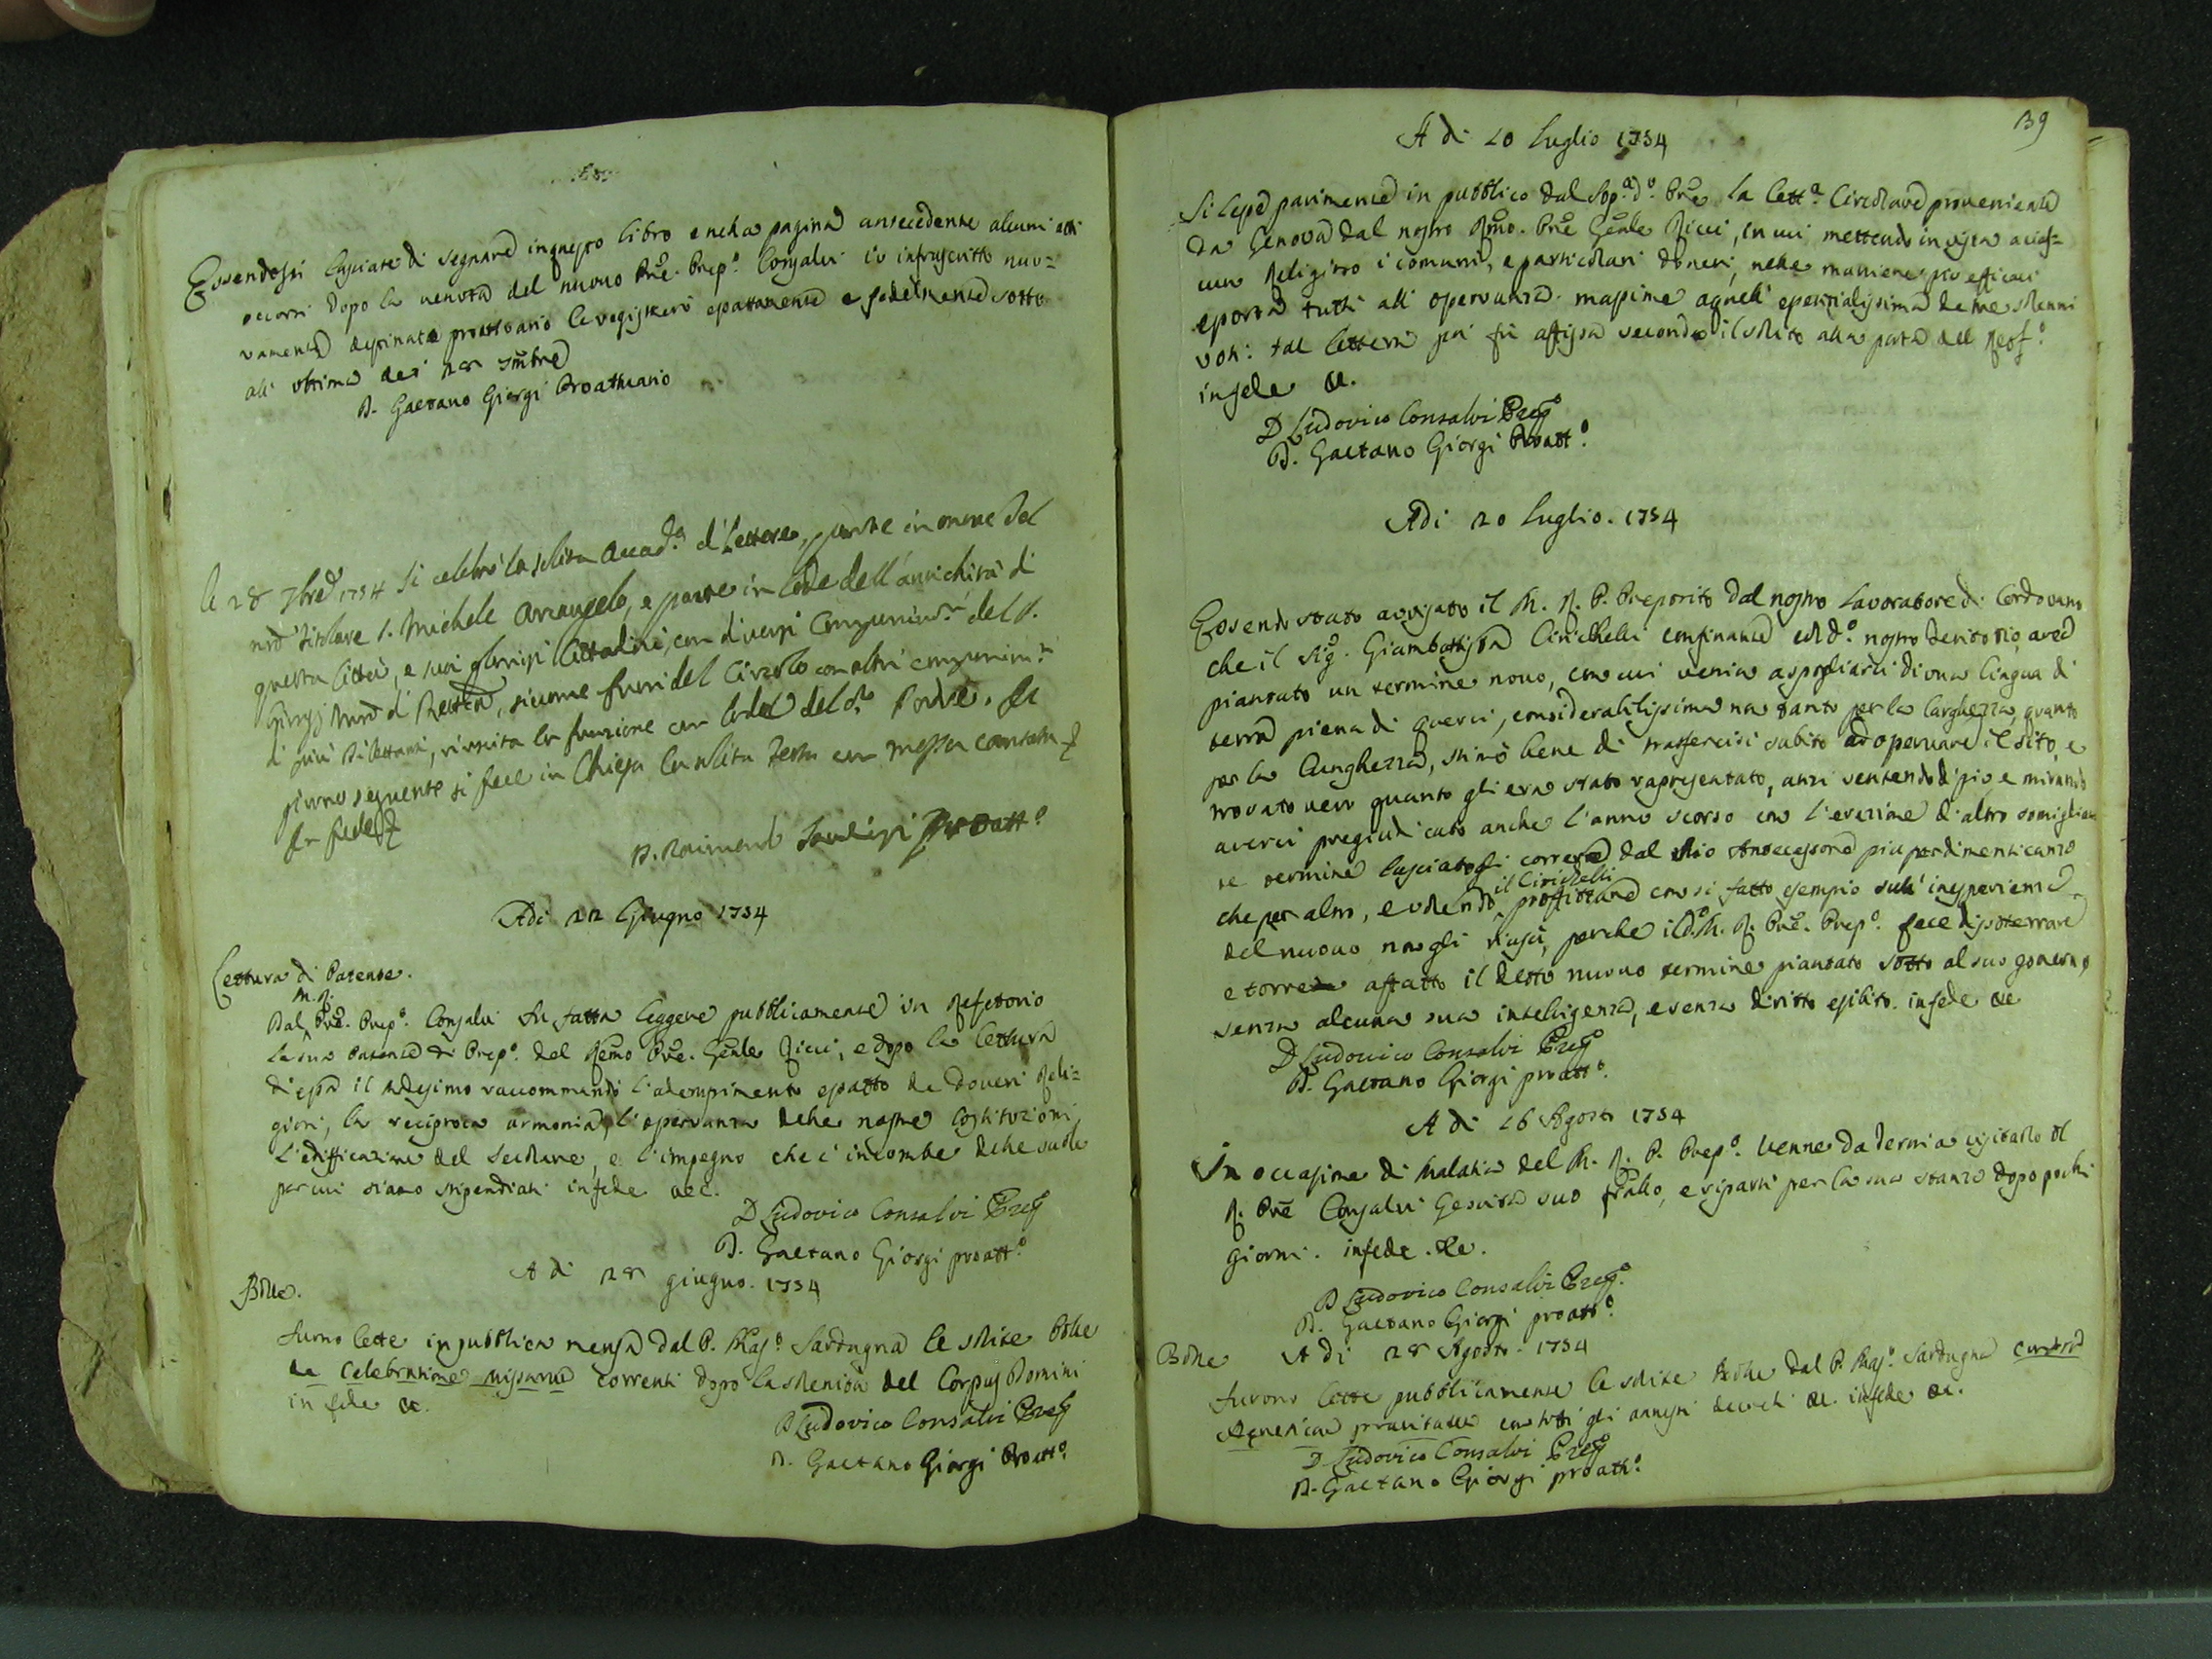 Essendosi lasciati di segnare in questo libro e nella pagina antecedente alcuni atti
occorsi dopo la venuta del nuovo Pre. Prep.o Consalvi io infrascritto nuo=
vamente destinato proattuario li registrerò esattamente e fedelmente sotto
all' ultimo dei 28 7mbre
D. Gaetano Giorgi Proattuario
li 28 7bre 1754 si celebrò la solita Accad.a di Lettere, parte in onore del
nro Titolare S. Michele Arcangelo, e parte in lode dell' antichità di
questa Città, e suoi gloriosi Cittadini, con diversi componim.ti del P.
Giorgi nro di Rett.a, siccome fuori del Circolo con altri componim.ti
di più dilettanti, riuscita la funzione con lode del d.o Padre. Il
giorno seguente si fece in Chiesa la solita festa con messa cantata
In fede
D. Raimondo Proatt.o
Adi 22 Giugno 1754
Lettura di Patente.
M. R.
Dal Pre. Prep.o Consalvi fu fatta leggere pubblicamente in Refetorio
la sua patente di Prep.o del Rmo Pre. Gnle Ricci, e dopo la lettura
di essa il medesimo raccommandò l' adempimento esatto de doveri Reli=
giosi, la reciproca armonia, l' osservanza delle nostre Costituzioni,
l' edifficazione del Secolare, e l' impegno che c' incombe delle scuole
per cui siamo stipendiati in fede &c.
D Ludovico Consalvi Prep.o
D. Gaetano Giorgi proatt.o
A di 28 giugno. 1754
Bolle.
Furno lette in pubblica mensa dal P. Mas.o Sardagna le solite Bolle
de celebratione missarum correnti dopo la solennità del Corpus Domini
in fede &c.
D Ludovico Consalvi Prep.o
D. Gaetano Giorgi Proatt.o
139
A di 10 luglio 1754
Si lesse parimente in pubblico dal Sop.a d.o Pre la lett.a Circolare proveniente
da Genova dal nostro Rmo. Pre Gnle Ricci, in cui mettendo in vista a cias=
cun Religioso i comuni, e particolari doveri, nelle maniere più efficaci
esorta tutti all' osservanza massime a quelli essenzialissima de tre solenni
voti: tal lettera poi fu affissa secondo il solito alla porta del Reff.o
in fede &c.
D Ludovico Consalvi Prep.o
D. Gaetano Giorgi Proatt.o
Adi 20 luglio. 1754
Essendo stato avvisato il M. R. P. Preposito dal nostro lavoratore di Cordovano
che il Sig. Giambattista Cirichelli confinante col d.o nostro teritorio, avea
piantato un termine novo, con cui veniva a spogliarci di una lingua di
terra piena di querci, considerabilissima non tanto per la larghezza, quanto
per la lunghezza, stimò bene di trasferirsi subito ad osservare il sito, e
trovato vero quanto gli era stato rapresentato, anzi sentendo di più e mirando
averci pregiudicato anche l' anno scorso con l' erezione d' altro somiglian
te termine lasciatogli correre dal suo Antecessore più per dimenticanza
che per altro, e volendo il Cirichelli proffittare con sì fatto esempio sull' inesperienza
del nuovo non gli riuscì, perche il d.o M. R. Pre. Prep.o fece dissotterrare
e torre affatto il detto nuovo termine piantato sotto al suo governo
senza alcuna sua intelligenza, e senza diritto esibito. in fede &c
D Ludovico Consalvi Prep.o
D. Gaetano Giorgi proatt.o
A di 16 Agosto 1754
In occasione di malatia del M. R. P. Prep.o venne da Terni a visitarlo il
R. Pre Consalvi Gesuita suo frallo, e ripartì per la sua stanza dopo pochi
giorni. in fede. &c.
D Ludovico Consalvi Prep.o
D. Gaetano Giorgi proatt.o
Bolle
A di 28 Agosto. 1754
Furono lette pubblicamente le solite Bolle dal P. Mas.o Sardagna contra
hereticam pravitatem con tutti gli annessi decreti &c. in fede &c.
D Ludovico Consalvi Prep.o
D. Gaetano Giorgi proatt.o